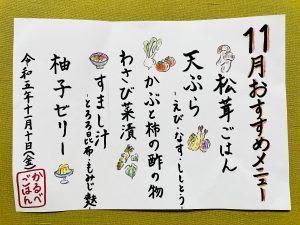 11月おすすめメニュー
松茸ごはん
天ぷら
―えび・なす・ししとう―
かぶと柿の酢の物
わさび菜漬
すまし汁
―とろろ昆布・もみじ麩
柚子ゼリー
令和五年十一月十日(金)
かるべ
ごはん